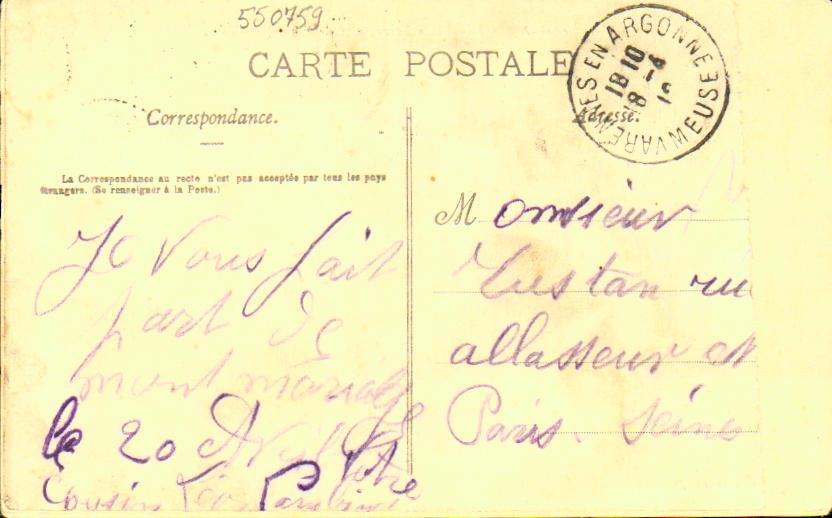 550759
CARTE POSTALE
VARENNES EN ARGONNE MEUSE
18 10
18 -4
Correspondance.
Adresse.
La Correspondance au recto n'est pas acceptée par tous les pays
étrangers. (Se renseigner à la Poste.)
Je vous fait
part de
mont mariage
le 20 Avril
Votre
Cousin Léon
Monsieur
rue
allasseur
Paris. Seine